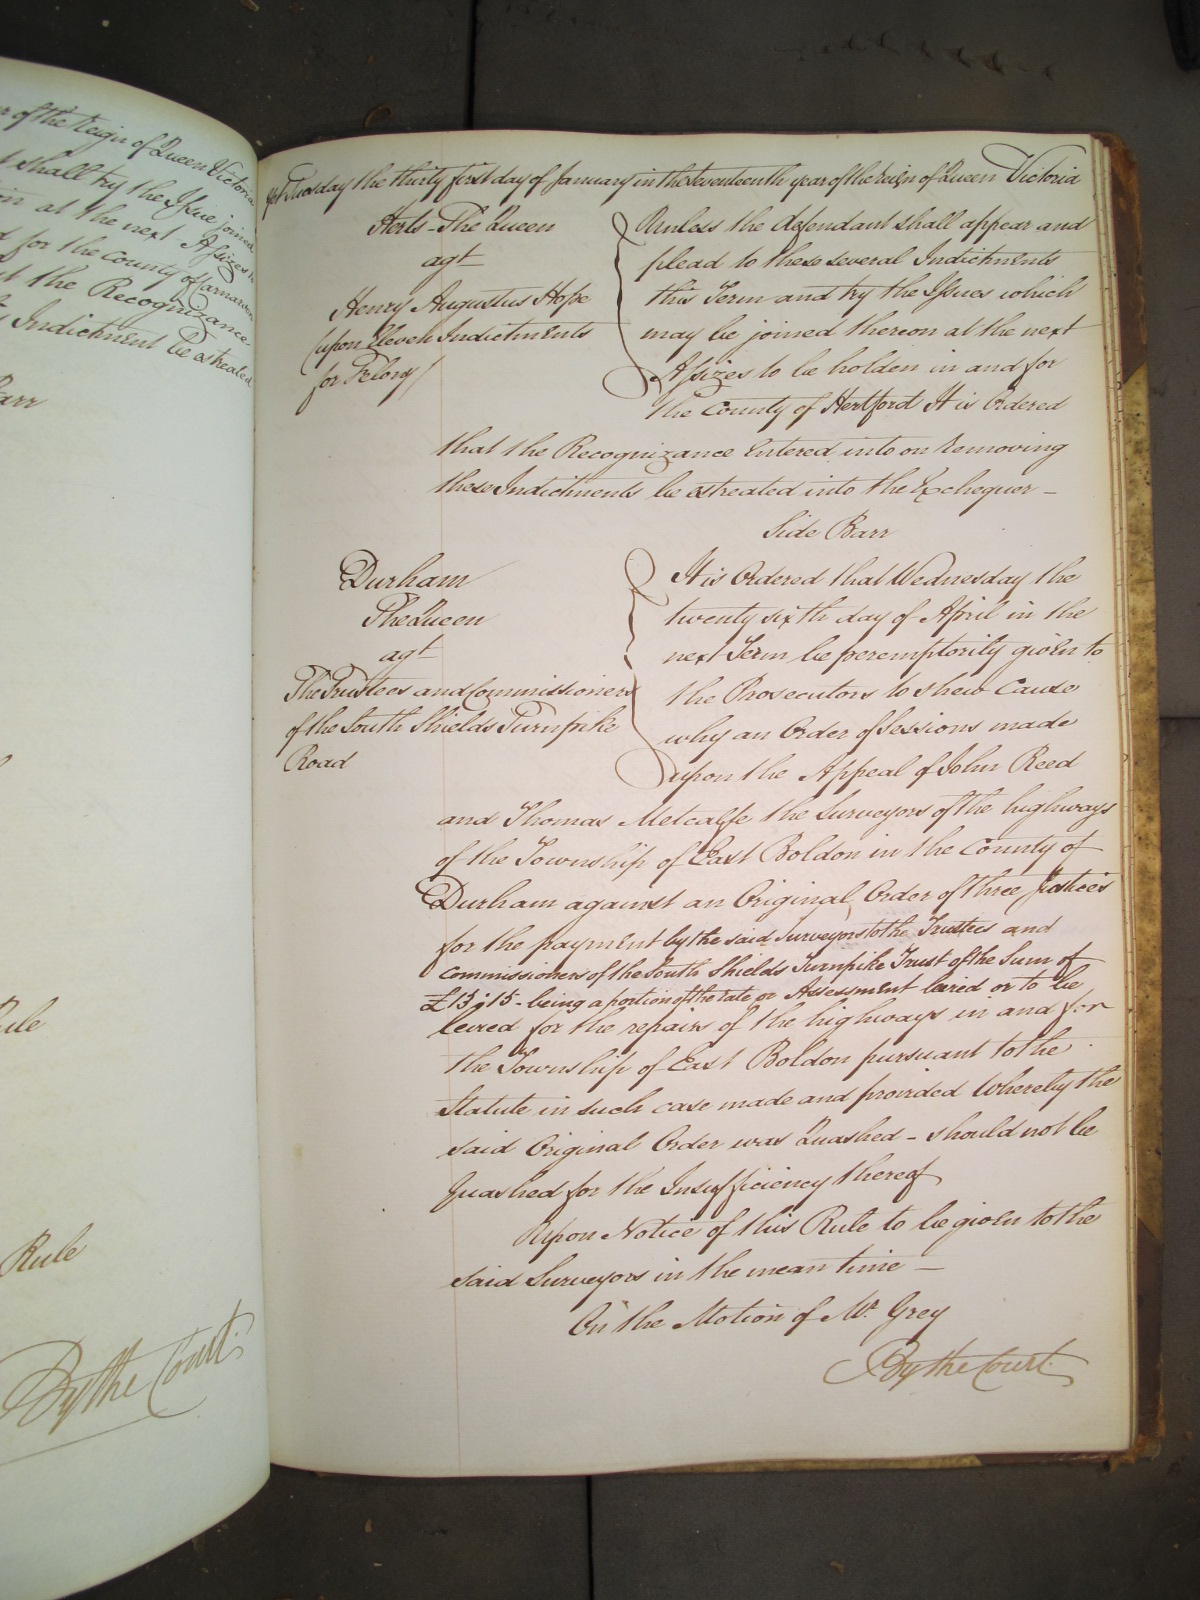 r of the Reign of Queen Victoria
shall try the Issue joined
at the next Assizes
for the County of Carnarvon
the Recognizance
Indictment be estreated
Barr
Rule
Rule
By the Court
Yet Tuesday the thirty first day of January in the Seventeenth year of the reign of Queen Victoria
Herts - The Queen
agt
Henry Augustus Hope
(upon Eleven Indictments
for Felony)
Unless the defendant shall appear and
plead to these several Indictments
this Term and try the Issues which
may be joined thereon at the next
Assizes to be holden in and for
the County of Hertford It is Ordered
that the Recognizance Entered into on Removing
these Indictments be estreated into the Exchequer -
Side Barr
Durham
The Queen
agt
The Trustees and Commissioners
of the South Shields Turnpike
Road
It is Ordered that Wednesday the
twenty sixth day of April in the
next Term be peremptorily given to
the Prosecutors to shew Cause
why an Order of Sessions made
upon the Appeal of John Reed
and Thomas Metcalfe the Surveyors of the highways
of the Township of East Boldon in the County of
Durham against an Original Order of three Justices
for the payment by the said Surveyors to the Trustees and
Commissioners of the South Shields Turnpike Trust of the Sum of
£13 . 15 - being a portion of the rate or Assessment levied or to be
levied for the repairs of the highways in and for
the Township of East Boldon pursuant to the
Statute in such case made and provided Whereby the
said Original Order was Quashed - should not be
Quashed for the Insufficiency thereof
Upon Notice of this Rule to be given to the
said Surveyors in the mean time -
On the Motion of Mr. Grey
By the Court.